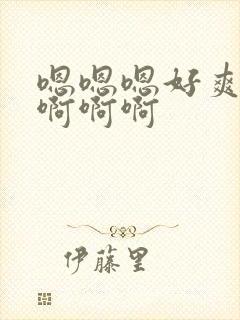 嗯嗯嗯好爽
啊啊啊
伊藤里